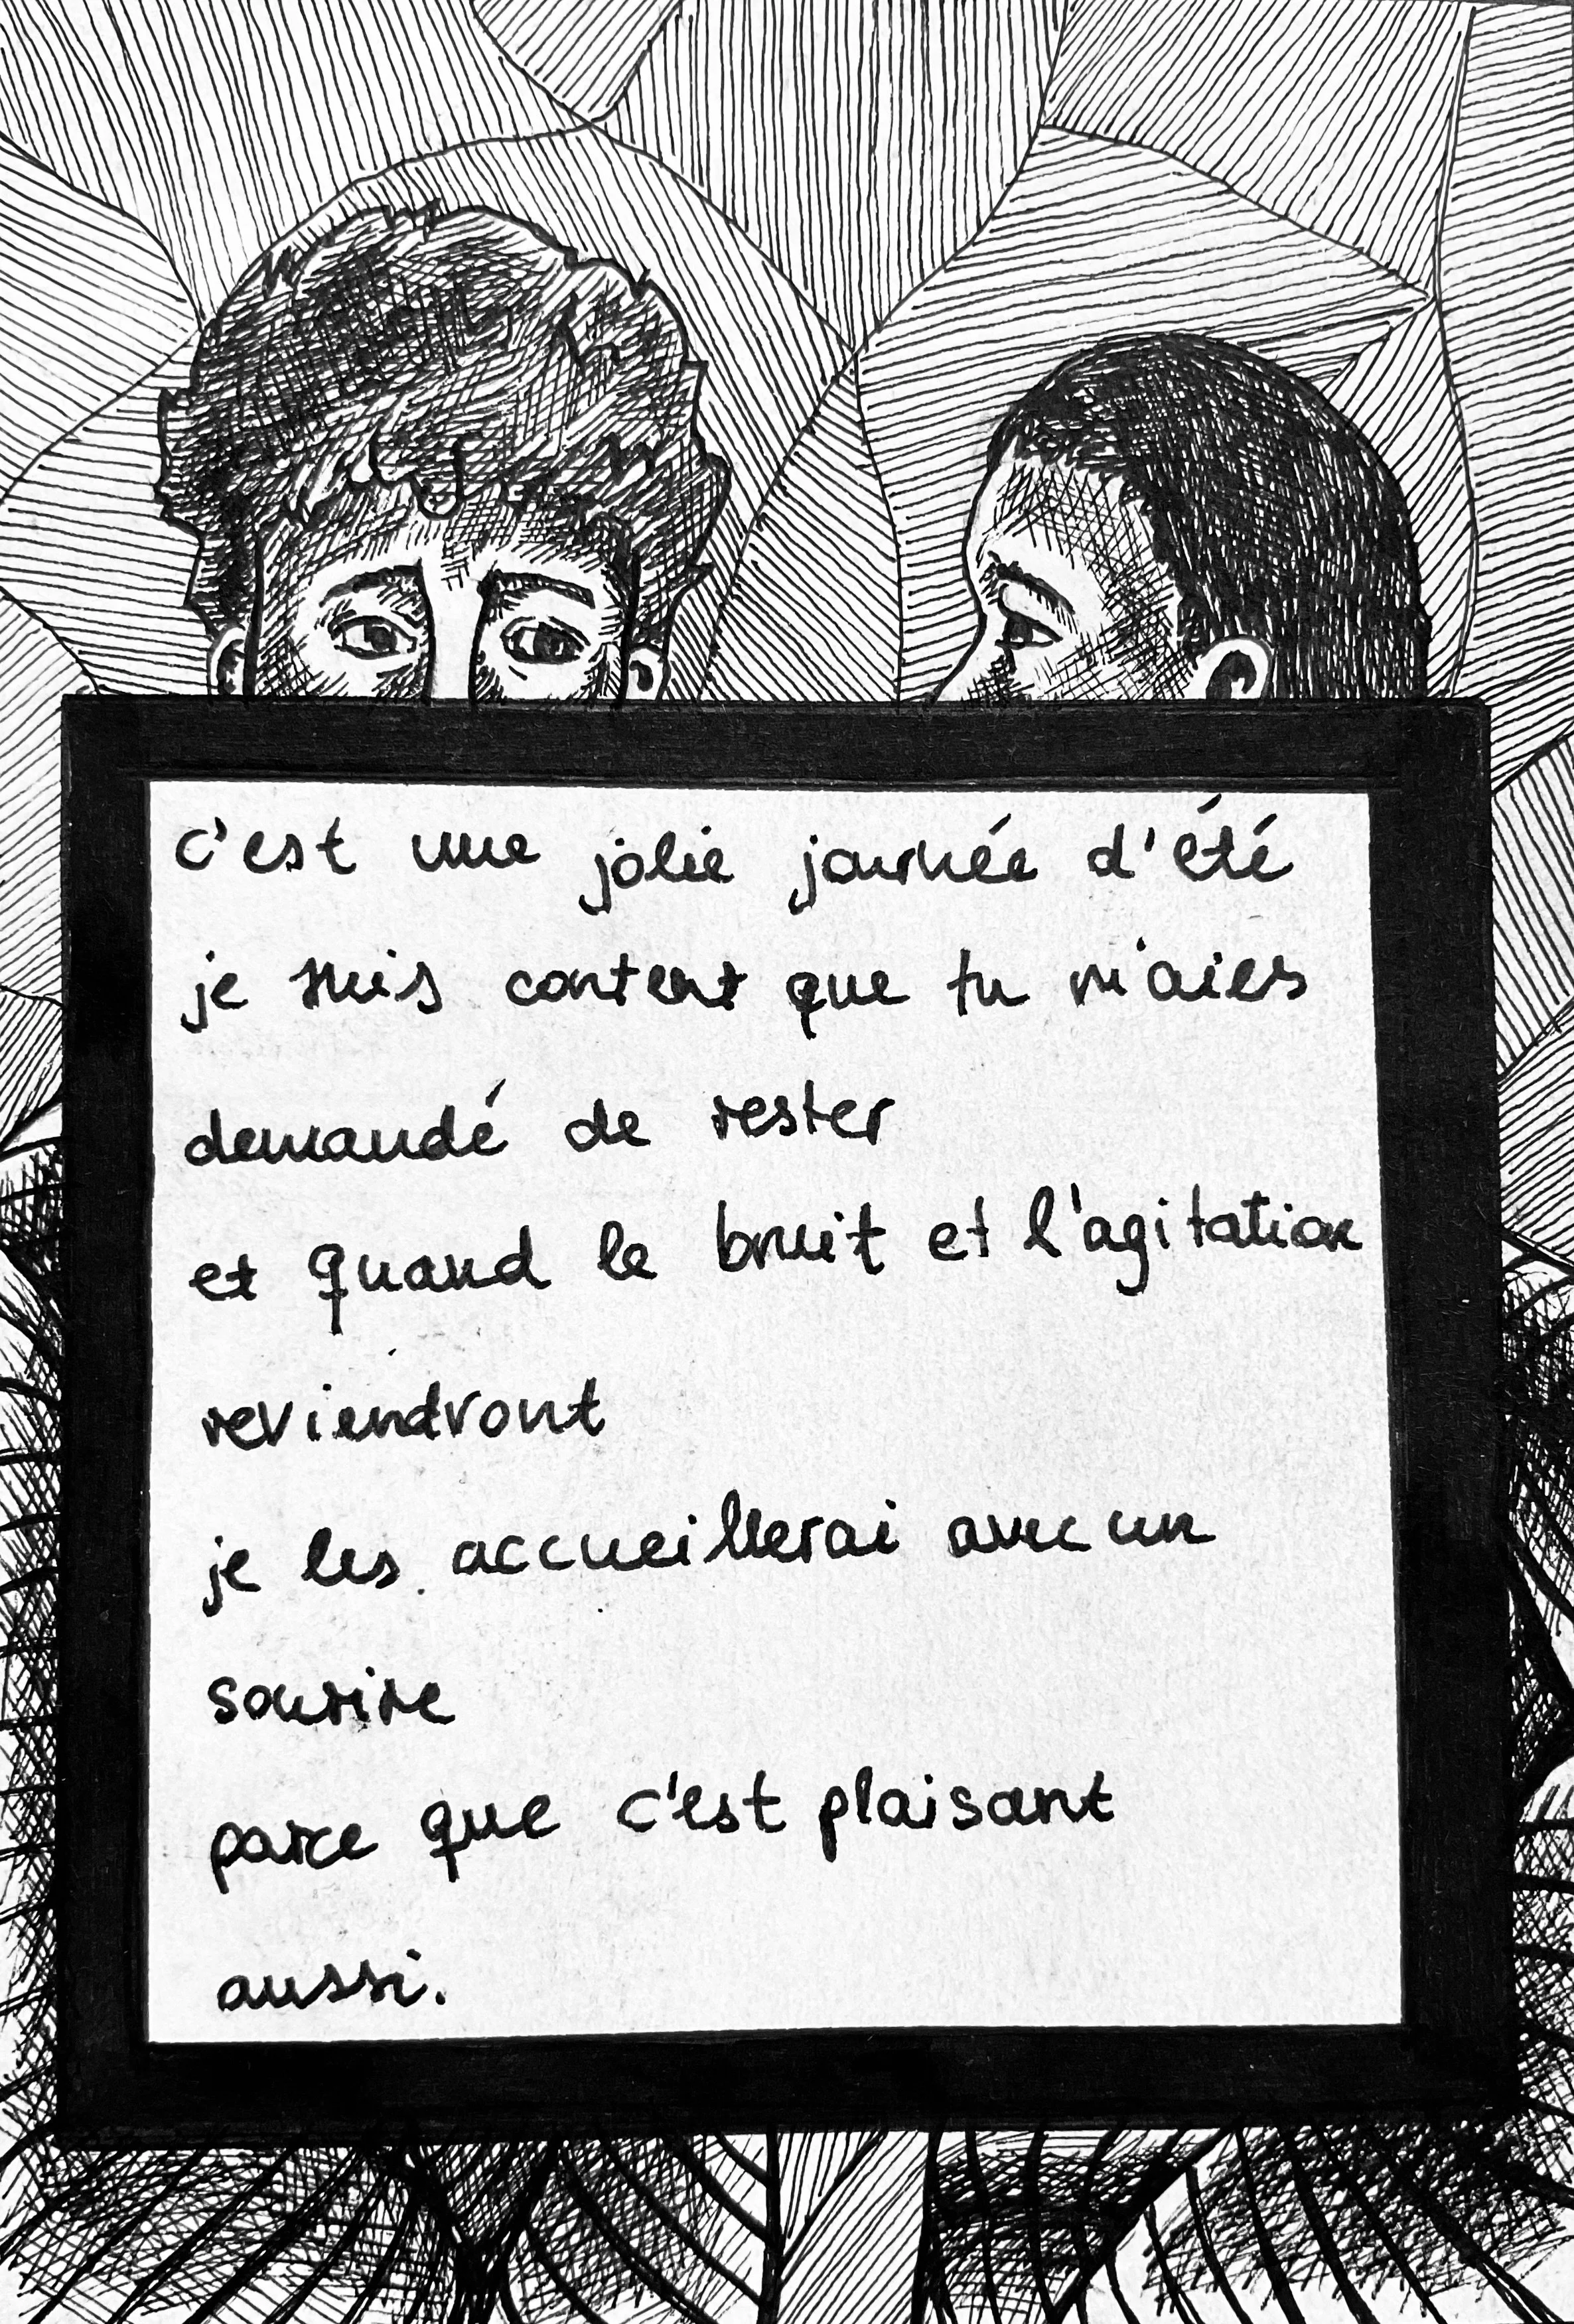 c'est une jolie journée d'été
je suis content que tu m'aies
demandé de rester
et quand le bruit et l'agitation
reviendront
je les accueillerai avec un
sourire
parce que c'est plaisant
aussi.